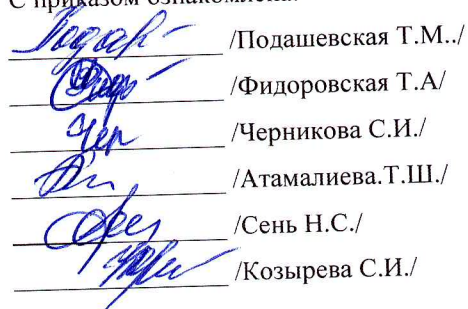 С приказом ознакомлен
/Подашевская Т.М../
/Фидоровская Т.А/
/Черникова С.И./
/Атамалиева.Т.Ш./
/Сень Н.С./
/Козырева С.И./